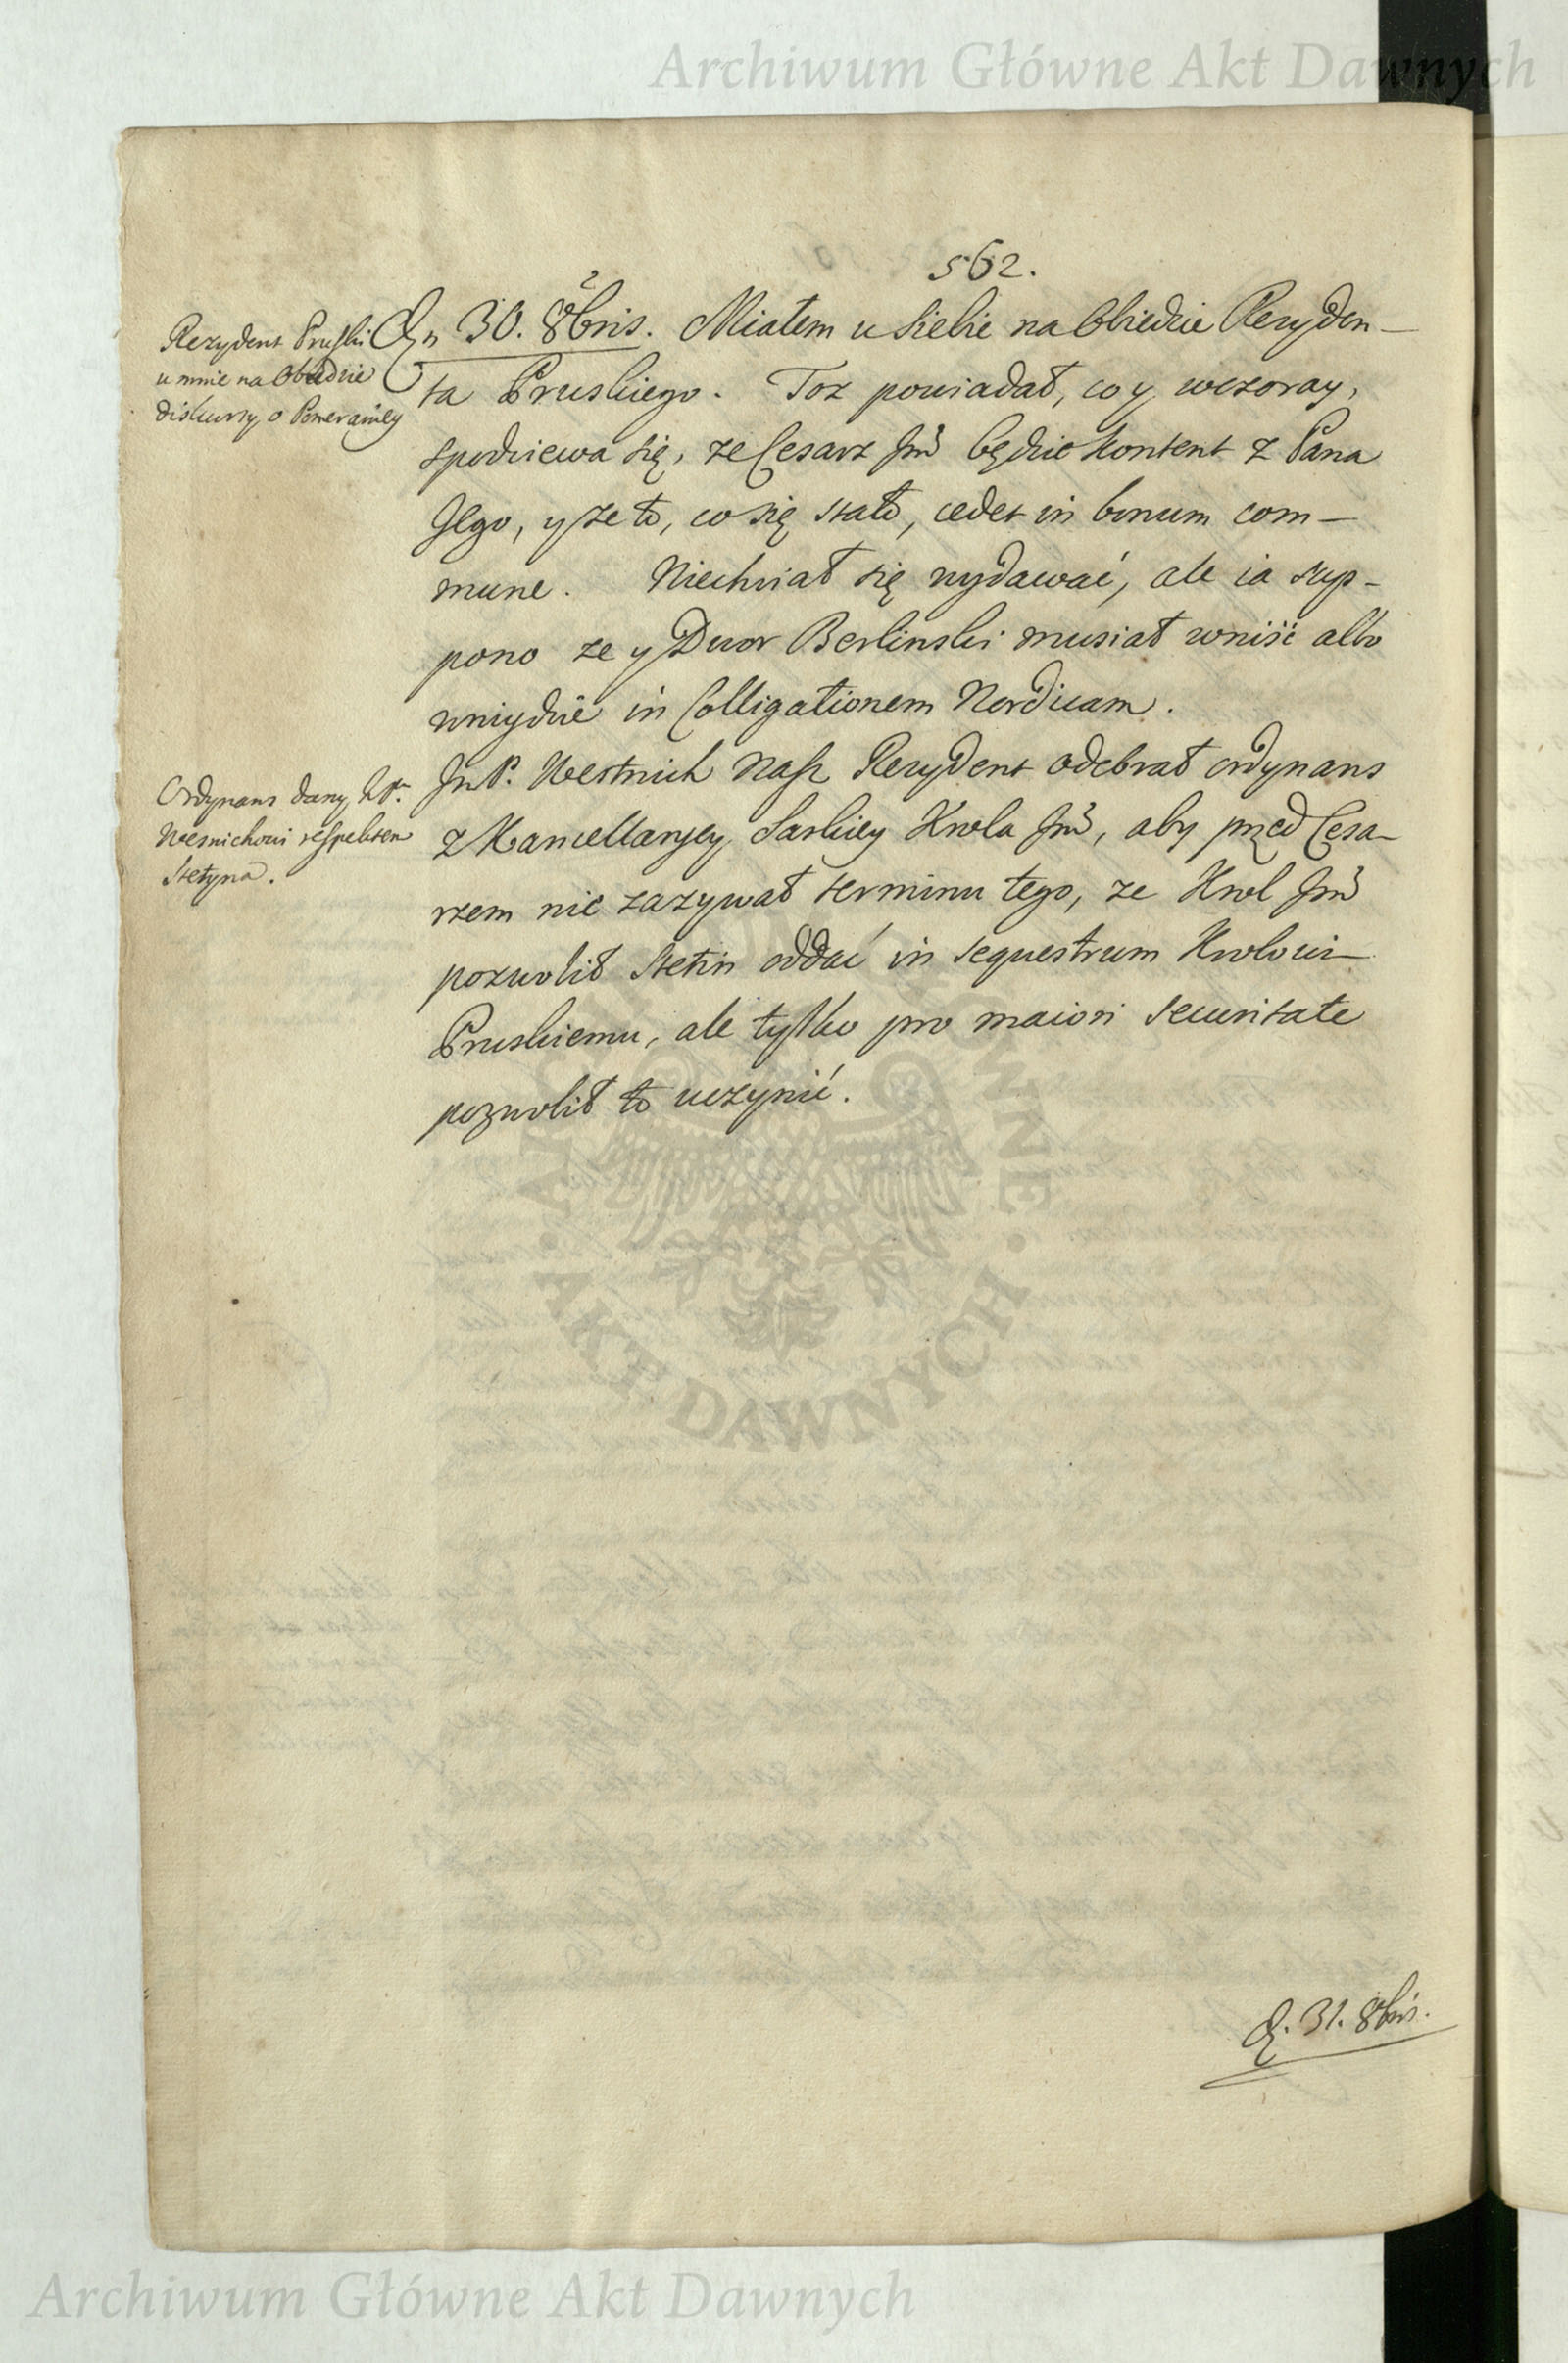 Archiwum Główne Akt Dawnych
562.
Rezydent Pruski
u mnie na Obiedzie
diskursy o Pomeraniey
Dn 30. 8bris. Miałem u siebie na Obiedzie Rezyden-
ta Pruskiego. Toz powiadał, co y wczoray,
spodziewa się, ze Cesarz Jm będzie kontent z Pana
Jego, y ze to, co się stało, cedet in bonum com-
mune. Niechciał się wydawać, ale ia sup-
pono ze y Dwor Berlinski musiał wniść albo
wniydzie in Colligationem Nordicam.
Ordynans dany
Wesnichowi respektem
Stetyna.
JmP. Westnich Nasz Rezydent odebrał ordynans
z Kancellaryey Saskiey Krola Jm, aby przed Cesa-
rzem nie zazywał terminu tego, ze Krol Jm
pozwolił Stetin oddać in sequestrum Krolowi
Pruskiemu, ale tylko pro maiori securitate
pozwolił to uczynić.
D. 31. 8bris.
AKT DAWNYCH
Archiwum Główne Akt Dawnych